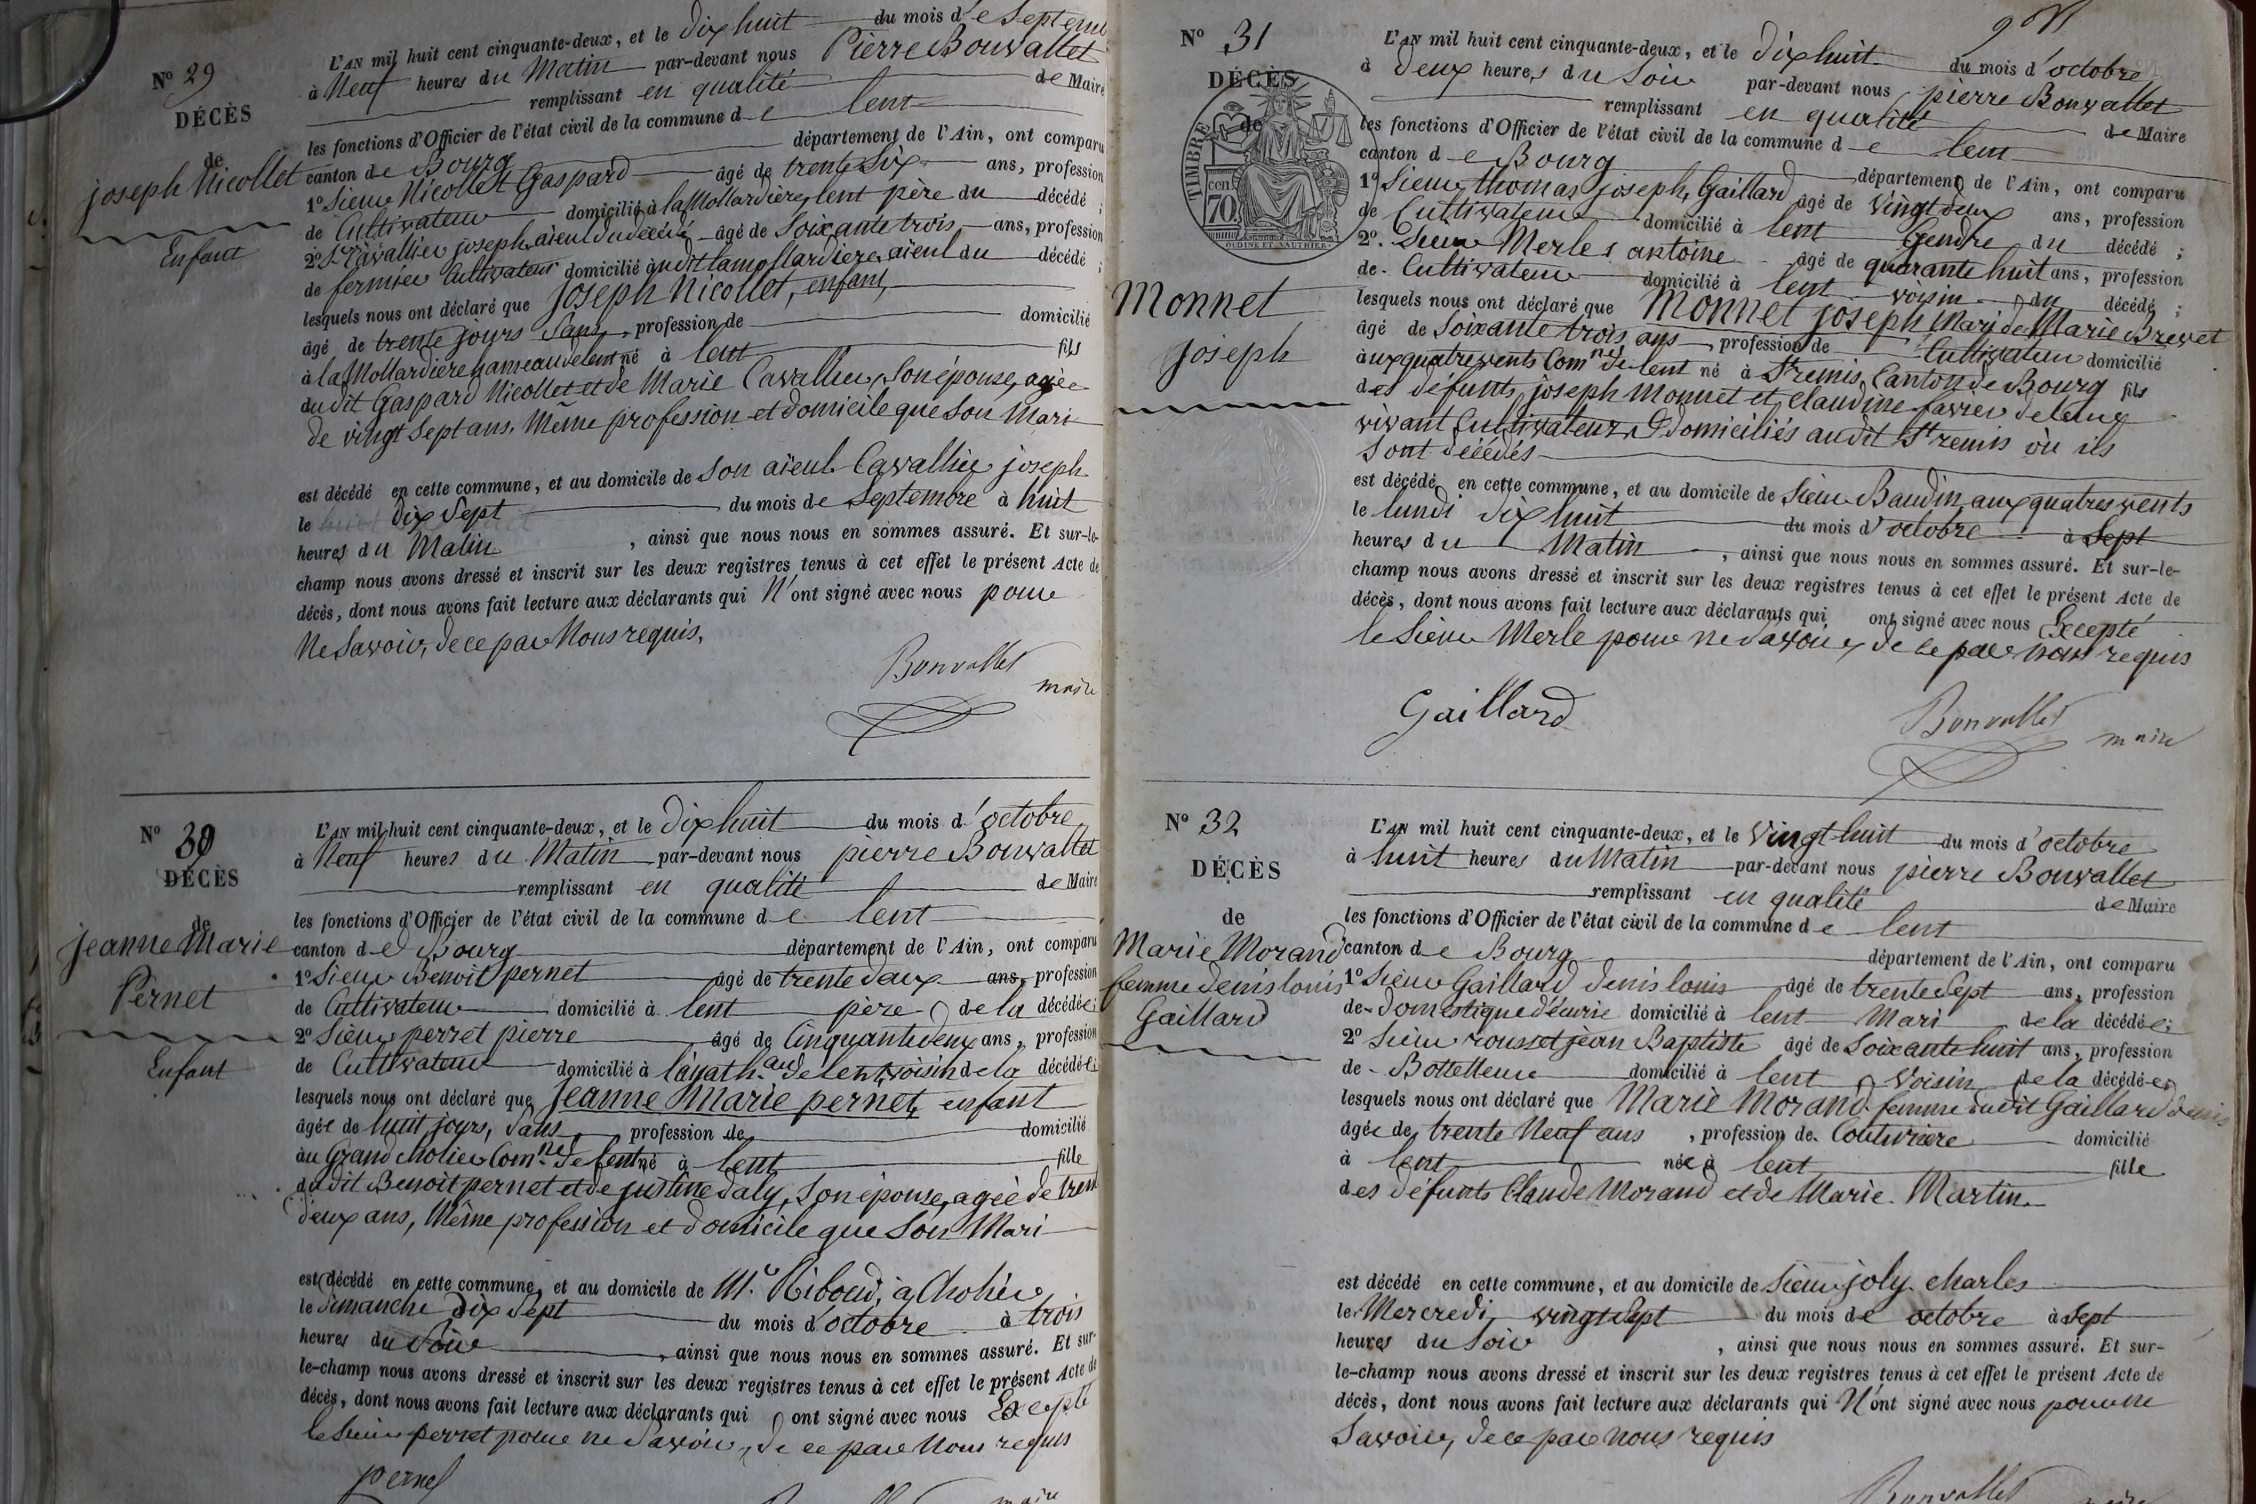 N° 29
DÉCÈS
de
joseph Nicollet
Enfant
L'AN mil huit cent cinquante-deux, et le dix huit du mois de Septemb
à Neuf heures du Matin par-devant nous Pierre Bonvallet
remplissant en qualité de Maire
les fonctions d'Officier de l'état civil de la commune de lent
canton de Bourg département de l'Ain, ont comparu
1° Sieur Nicollet Gaspard âgé de trente Six ans, profession
de Cultivateur domicilié à la Mollardière, lent père du décédé ;
2° Sr Cavallier joseph aieul du décédé âgé de Soixante trois ans, profession
de fermier Cultivateur domicilié audit lamollardière aieul du décédé ;
lesquels nous ont déclaré que joseph Nicollet, enfant,
âgé de trente jours Sans profession de domicilié
à la Mollardière hameau de lent né à lent fils
dudit Gaspard Nicollet et de Marie Cavallier, Son épouse, agée
de vingt Sept ans, Même profession et domicile que Son Mari
est décédé en cette commune, et au domicile de Son aïeul Cavallier joseph
le dix Sept du mois de Septembre à huit
heures du Matin , ainsi que nous nous en sommes assuré. Et sur-le-
champ nous avons dressé et inscrit sur les deux registres tenus à cet effet le présent Acte de
décès, dont nous avons fait lecture aux déclarants qui N'ont signé avec nous pour
Ne Savoir, de ce par Nous requis,
Bonvallet
maire
N° 30
DÉCÈS
de
jeanne Marie
Pernet
Enfant
L'AN mil huit cent cinquante-deux, et le dix huit du mois d'octobre
à Neuf heures du Matin par-devant nous pierre Bonvallet
remplissant en qualité de Maire
les fonctions d'Officier de l'état civil de la commune de lent
canton de Bourg département de l'Ain, ont comparu
1° Sieur Benoit pernet âgé de trente deux ans, profession
de Cultivateur domicilié à lent père de la décédée;
2° Sieur perret pierre âgé de Cinquante deux ans, profession
de Cultivateur domicilié à de lent, voisin de la décédée;
lesquels nous ont déclaré que jeanne Marie pernet, enfant
âgée de huit jours, Sans profession de domicilié
au Grand cholier Comne de lent né à lent fille
dudit Benoit pernet et de justine daly, Son épouse, agée de trent
deux ans, Même profession et domicile que Son Mari
est décédé en cette commune, et au domicile de Mr Riboud, à Cholier
le Dimanche dix Sept du mois d'octobre à trois
heures du Soir , ainsi que nous nous en sommes assuré. Et sur-
le-champ nous avons dressé et inscrit sur les deux registres tenus à cet effet le présent Acte de
décès, dont nous avons fait lecture aux déclarants qui ont signé avec nous Excepté
le Sieur perret pour ne Savoir, de ce par Nous requis
pernet
maire
N° 31
DÉCÈS
de
TIMBRE
cen
70
OUDINE ET GAUTHIER
Monnet
joseph
L'AN mil huit cent cinquante-deux, et le dix huit du mois d'octobre
à deux heures du Soir par-devant nous pierre Bonvallet
remplissant en qualité de Maire
les fonctions d'Officier de l'état civil de la commune de lent
canton de Bourg département de l'Ain, ont comparu
1° Sieur thomas joseph Gaillard âgé de Vingt deux ans, profession
de Cultivateur domicilié à lent Gendre du décédé ;
2°. Sieur Merle antoine âgé de quarante huit ans, profession
de Cultivateur domicilié à lent voisin du décédé ;
lesquels nous ont déclaré que Monnet joseph Mari de Marie Brevet
âgé de Soixante trois ans profession de Cultivateur domicilié
aux quatre vents Comne de lent né à St remis Canton de Bourg fils
des défunts joseph Monnet et Claudine favier de leur
vivant Cultivateurs domiciliés audit St remis où ils
Sont décédés
est décédé en cette commune, et au domicile de Sieur Baudin aux quatres vents
le lundi dix huit du mois d'octobre à Sept
heures du Matin , ainsi que nous nous en sommes assuré. Et sur-le-
champ nous avons dressé et inscrit sur les deux registres tenus à cet effet le présent Acte de
décès, dont nous avons fait lecture aux déclarants qui ont signé avec nous Excepté
le Sieur Merle pour ne Savoir, de ce par nous requis
Gaillard
Bonvallet
maire
N° 32
DÉCÈS
de
Marie Morand
femme denis louis
Gaillard
L'AN mil huit cent cinquante-deux, et le Vingt huit du mois d'octobre
à huit heures du Matin par-devant nous pierre Bonvallet
remplissant en qualité de Maire
les fonctions d'Officier de l'état civil de la commune de lent
canton de Bourg département de l'Ain, ont comparu
1° Sieur Gaillard denis louis âgé de trente Sept ans, profession
de domestique d'écurie domicilié à lent Mari de la décédée;
2° Sieur rousset jean Baptiste âgé de Soixante huit ans, profession
de Bottelleur domicilié à lent Voisin de la décédée;
lesquels nous ont déclaré que Marie Morand femme dudit Gaillard denis
âgée de trente Neuf ans , profession de Couturière domicilié
à lent née à lent fille
des défunts Claude Morand et de Marie Martin
est décédé en cette commune, et au domicile de Sieur joly Charles
le Mercredi vingt Sept du mois de octobre à Sept
heures du Soir , ainsi que nous nous en sommes assuré. Et sur-
le-champ nous avons dressé et inscrit sur les deux registres tenus à cet effet le présent Acte de
décès, dont nous avons fait lecture aux déclarants qui N'ont signé avec nous pour ne
Savoir, de ce par nous requis
Bonvallet